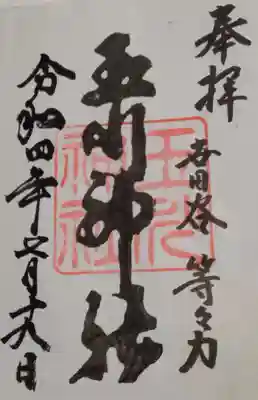 奉拝
世田谷 等々力
玉川神社
玉川
神社
令和四年五月 日